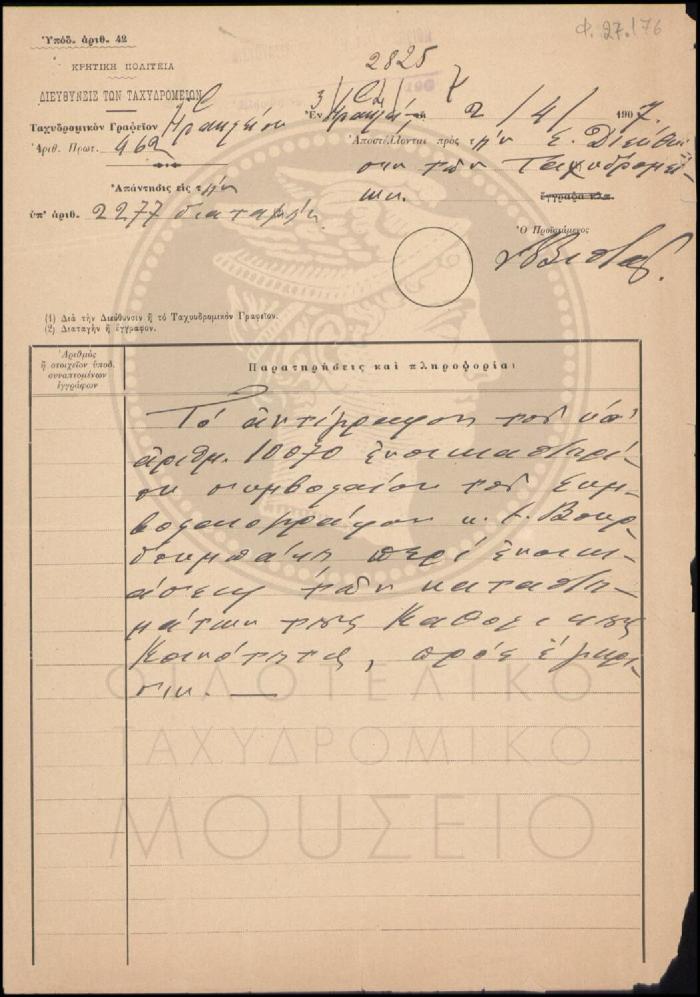 Φ. 27.176
Ὑπόδ. ἀριθ. 42
2825
ΚΡΗΤΙΚΗ ΠΟΛΙΤΕΙΑ
ΔΙΕΥΘΥΝΣΙΣ ΤΩΝ ΤΑΧΥΔΡΟΜΕΙΩΝ
Ταχυδρομικὸν Γραφεῖον Ἡρακλείου
Ἀριθ. Πρωτ. 462
Ἀπάντησις εἰς τὴν
ὑπ' ἀριθ. 2277 διαταγήν
Ἐν Ἡρακλείῳ 2/4/1907.
Ἀποστέλλονται πρὸς τὴν Σ. Διεύθυν
σιν τῶν Ταχυδρομεί-
ων. ἔγγραφα κλπ.
Ὁ Προϊστάμενος
(1) Διὰ τὴν Διεύθυνσιν ἢ τὸ Ταχυδρομικὸν Γραφεῖον.
(2) Διαταγὴν ἢ ἔγγραφον.
Ἀριθμὸς
ἢ στοιχεῖον ὑποδ.
συναπτομένων
ἐγγράφων
Παρατηρήσεις καὶ πληροφορίαι
Τὸ ἀντίγραφον τοῦ ὑπ'
ἀριθμ. 10070 ἐνοικιαστηρί-
ου συμβολαίου τοῦ συμ-
βολαιογράφου κ. Α. Βουρ-
δουμπάκη περὶ ἐνοικι-
άσεως τῶν καταστη-
μάτων τῆς Καθολικῆς
Κοινότητος, πρὸς ἔγκρι-
σιν. —
ΦΙΛΟΤΕΛΙΚΟ
ΤΑΧΥΔΡΟΜΙΚΟ
ΜΟΥΣΕΙΟ